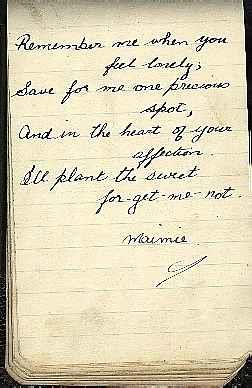 Remember me when you
feel lonely;
Save for me one precious
spot,
And in the heart of your
affection.
I'll plant the sweet
for-get-me-not.
Maimie